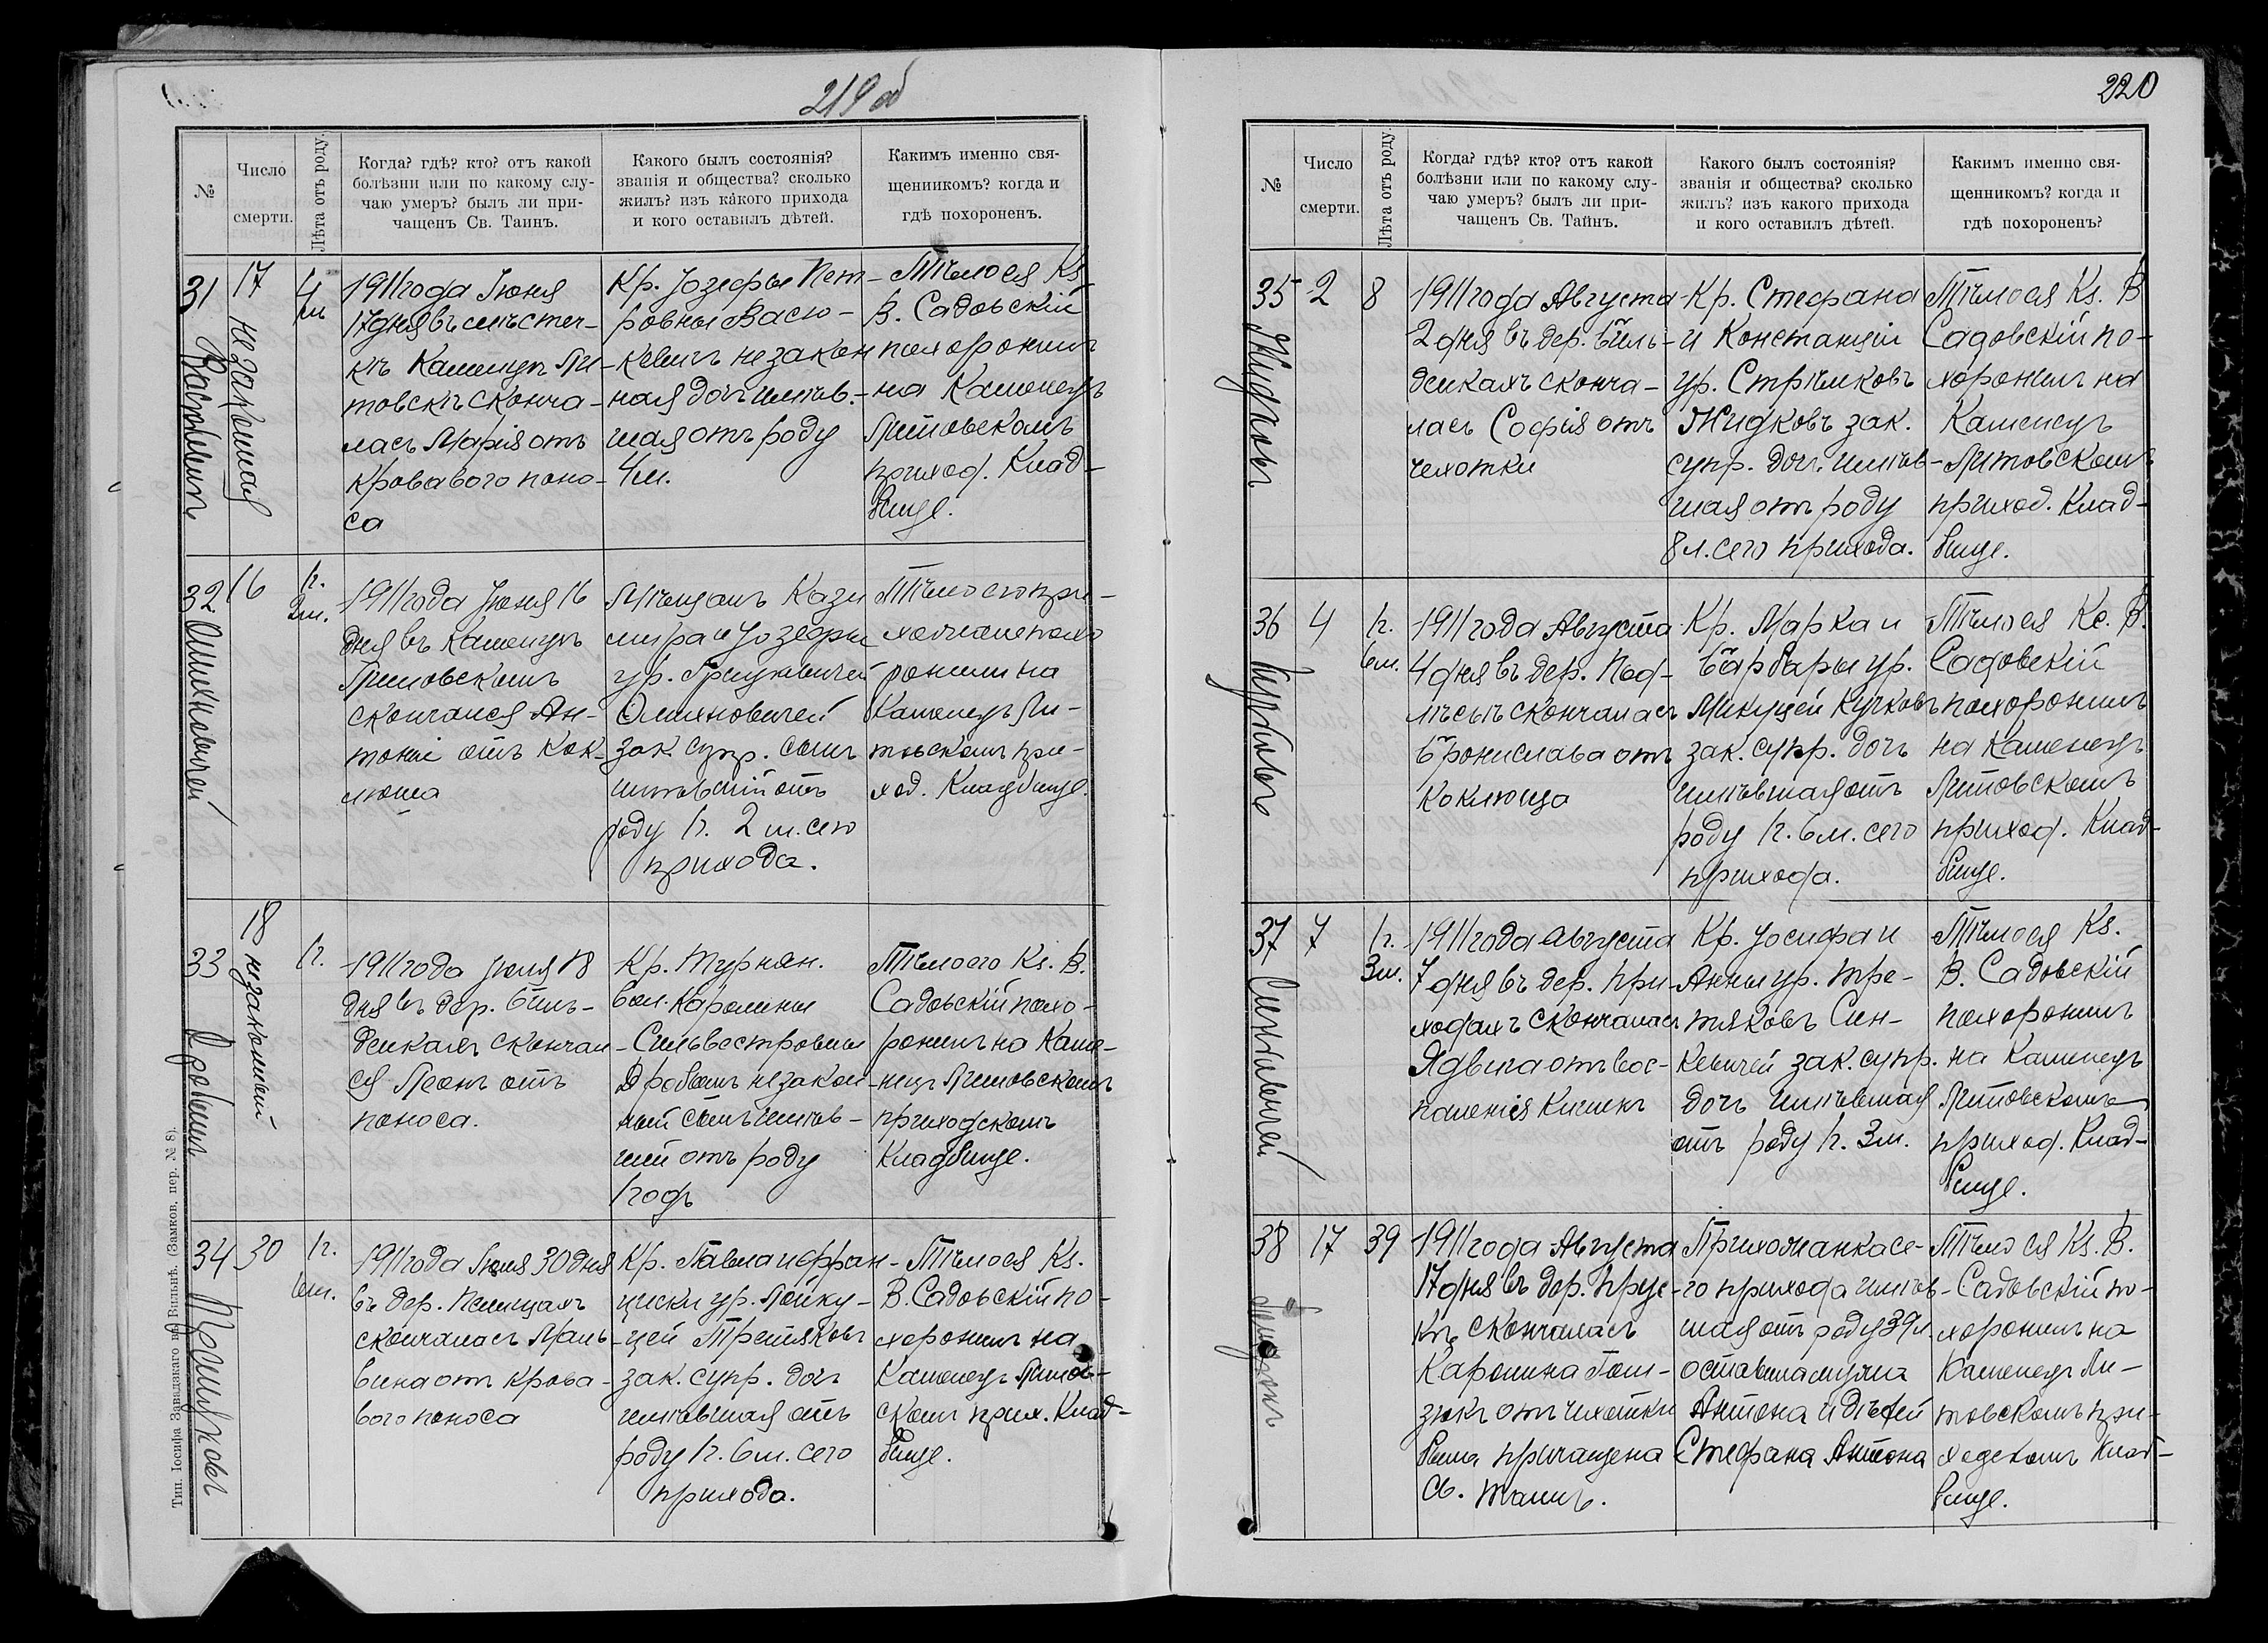 219 об
№
Число
смерти.
Лѣта отъ роду.
Когда? гдѣ? кто? отъ какой
болѣзни или по какому слу-
чаю умеръ? былъ ли при-
чащенъ Св. Таинъ.
Какого былъ состоянія?
званія и общества? сколько
жилъ? изъ какого прихода
и кого оставилъ дѣтей.
Какимъ именно свя-
щенникомъ? когда и
гдѣ похороненъ.
31
17
незаконная
4 м
1911 года Іюня
17 дня въ мѣстеч-
кѣ Каменцѣ Ли-
товскѣ сконча-
лась Марія отъ
кроваваго поно-
са
Кр. Іозефы Пет-
ровны Васю-
кевичъ незакон
ная дочь имѣв-
шая отъ роду
4 м.
Тѣло ея Ks.
В. Садовскій
похоронилъ
на Каменецъ
Литовскомъ
приход. Клад-
бище.
32
Олихновичей
16
1г.
2м.
1911 года Іюня 16
дня въ Каменцѣ
Литовскомъ
скончался Ан-
тоній отъ кок-
люша
Мѣщанъ Кази
мира и Іозефы
ур.
Олихновичей
зак супр. сынъ
имѣвшій отъ
роду 1г. 2 м. сего
прихода.
Тѣло его при-
хожане похо
ронили на
Каменецъ Ли-
товскомъ при-
ход. Кладбище.
33
18
незаконный
1г.
1911 года Іюля 18
дня въ дер. Биль-
дейкахъ скончал-
ся Леонъ отъ
поноса.
Кр. Турнян.
вол. Каролины
Сильвестровны
незакон-
ный сынъ имѣв-
шій отъ роду
1 годъ
Тѣло его Ks. В.
Садовскій похо-
ронилъ на Каме-
нецъ Литовскомъ
приходскомъ
Кладбище.
34
Третьяковъ
30
1г.
6м.
1911 года Іюля 30 дня
въ дер. Пелищахъ
скончалась Маль-
вина отъ крова-
ваго поноса
Кр. Павла и Фран-
циски ур.
цей Третьяковъ
зак. супр. дочь
имѣвшая отъ
роду 1г. 6м. сего
прихода.
Тѣло ея Ks.
В. Садовскій по-
хоронилъ на
Каменецъ Литов-
скомъ прих. Клад-
бище.
Тип. Іосифа Завадзкаго въ Вильнѣ. (Замков. пер. № 8).
220
№
Число
смерти.
Лѣта отъ роду.
Когда? гдѣ? кто? отъ какой
болѣзни или по какому слу-
чаю умеръ? былъ ли при-
чащенъ Св. Тайнъ.
Какого былъ состоянія?
званія и общества? сколько
жилъ? изъ какого прихода
и кого оставилъ дѣтей.
Какимъ именно свя-
щенникомъ? когда и
гдѣ похороненъ?
35
Жидковъ
2
8
1911 года Августа
2 дня въ дер. Биль-
дейкахъ сконча-
лась Софія отъ
чехотки
Кр. Стефана
и Констанціи
ур. Стрѣлковъ
Жидковъ зак.
супр. доч. имѣв-
шая отъ роду
8 л. сего прихода.
Тѣло ея Ks. В
Садовскій по-
хоронилъ на
Каменецъ
Литовскомъ
приход. Клад-
бище.
36
4
1г.
6м.
1911 года Августа
4 дня въ дер. Под-
лѣсьѣ скончалась
Бронислава отъ
коклюша
Кр. Марка и
Барбары ур.
зак. супр. дочь
имѣвшая отъ
роду 1г. 6м. сего
прихода.
Тѣло ея Кс. В.
Садовскій
похоронилъ
на Каменецъ
Литовскомъ
приход. Клад-
бище.
37
Синкевичей
7
1г.
3м.
1911 года Августа
7 дня въ дер. При-
ходахъ скончалась
Ядвига отъ вос-
паленія кишекъ
Кр. Іосифа и
Анны ур. Тре-
тьяковъ Син-
кевичей зак. супр.
дочь имѣвшая
отъ роду 1г. 3м.
Тѣло ея Ks.
В. Садовскій
похоронилъ
на Каменецъ
Литовскомъ
приход. Клад-
бище.
38
17
39
1911 года Августа
17 дня въ дер. Прус-
кѣ скончалась
Каролина Гом-
зюкъ отъ чехотки
была причащена
Св. Таинъ.
Прихожанка се-
го прихода имѣв-
шая отъ роду 39 л.
оставила мужа
Антона и дѣтей
Стефана Антона
Тѣло ея Ks. В.
Садовскій по-
хоронилъ на
Каменецъ Ли-
товскомъ при-
ходскомъ Клад-
бище.